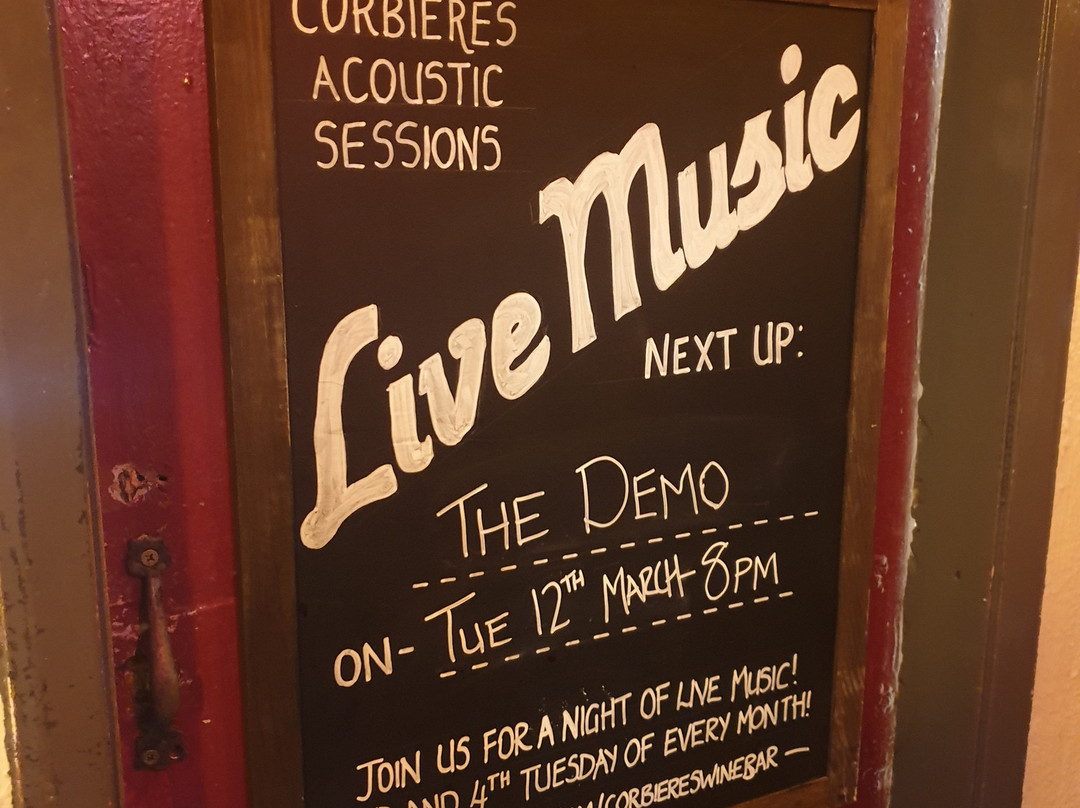 CORBIERES
ACOUSTIC
SESSIONS
Live Music
NEXT UP:
THE DEMO
ON- TUE 12TH MARCH 8PM
JOIN US FOR A NIGHT OF LIVE MUSIC!
AND 4TH TUESDAY OF EVERY MONTH!
/CORBIERESWINEBAR —